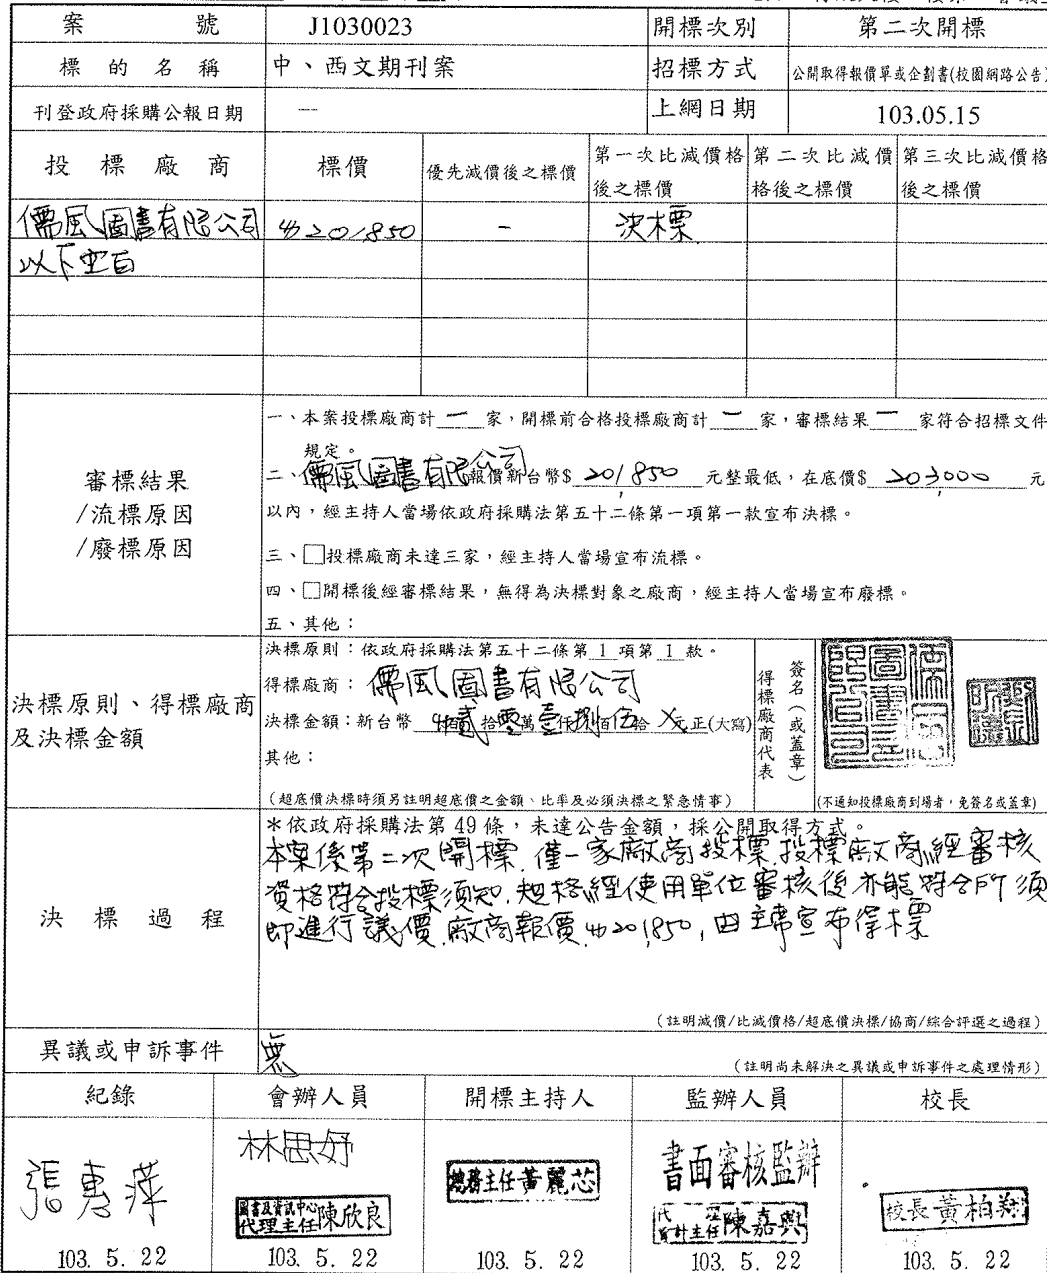 案號 J1030023 開標次別 第二次開標
標的名稱 中、西文期刊案 招標方式 公開取得報價單或企劃書(校園網路公告)
刊登政府採購公報日期 — 上網日期 103.05.15
投標廠商 標價 優先減價後之標價 第一次比減價格後之標價 第二次比減價格後之標價 第三次比減價格後之標價
儒風圖書有限公司 $201,850 - 決標
以下空白
審標結果
/流標原因
/廢標原因
一、本案投標廠商計 一 家，開標前合格投標廠商計 一 家，審標結果 一 家符合招標文件
規定。
二、儒風圖書有限公司報價新台幣$ 201,850 元整最低，在底價$ 203,000 元
以內，經主持人當場依政府採購法第五十二條第一項第一款宣布決標。
三、□投標廠商未達三家，經主持人當場宣布流標。
四、□開標後經審標結果，無得為決標對象之廠商，經主持人當場宣布廢標。
五、其他：
決標原則、得標廠商
及決標金額
決標原則：依政府採購法第五十二條第 1 項第 1 款。
得標廠商：儒風圖書有限公司
決標金額：新台幣 佰貳拾零萬壹仟捌佰伍拾X元正(大寫)
其他：
(超底價決標時須另註明超底價之金額、比率及必須決標之緊急情事)
得標廠商代表
簽名（或蓋章）
(不通知投標廠商到場者，免簽名或蓋章)
決標過程
＊依政府採購法第 49 條，未達公告金額，採公開取得方式。
本案係第二次開標,僅一家廠商投標,投標廠商經審核
資格符合投標須知,規格經使用單位審核後亦能符合所須
即進行議價,廠商報價$201,850,由主席宣布得標
(註明減價/比減價格/超底價決標/協商/綜合評選之過程)
異議或申訴事件 無
(註明尚未解決之異議或申訴事件之處理情形)
紀錄 會辦人員 開標主持人 監辦人員 校長
張惠萍
林思妤
圖書及資訊中心
代理主任陳欣良
總務主任黃麗芯
書面審核監辦
代理
會計主任陳嘉興
校長黃柏翔
103. 5. 22 103. 5. 22 103. 5. 22 103. 5. 22 103. 5. 22